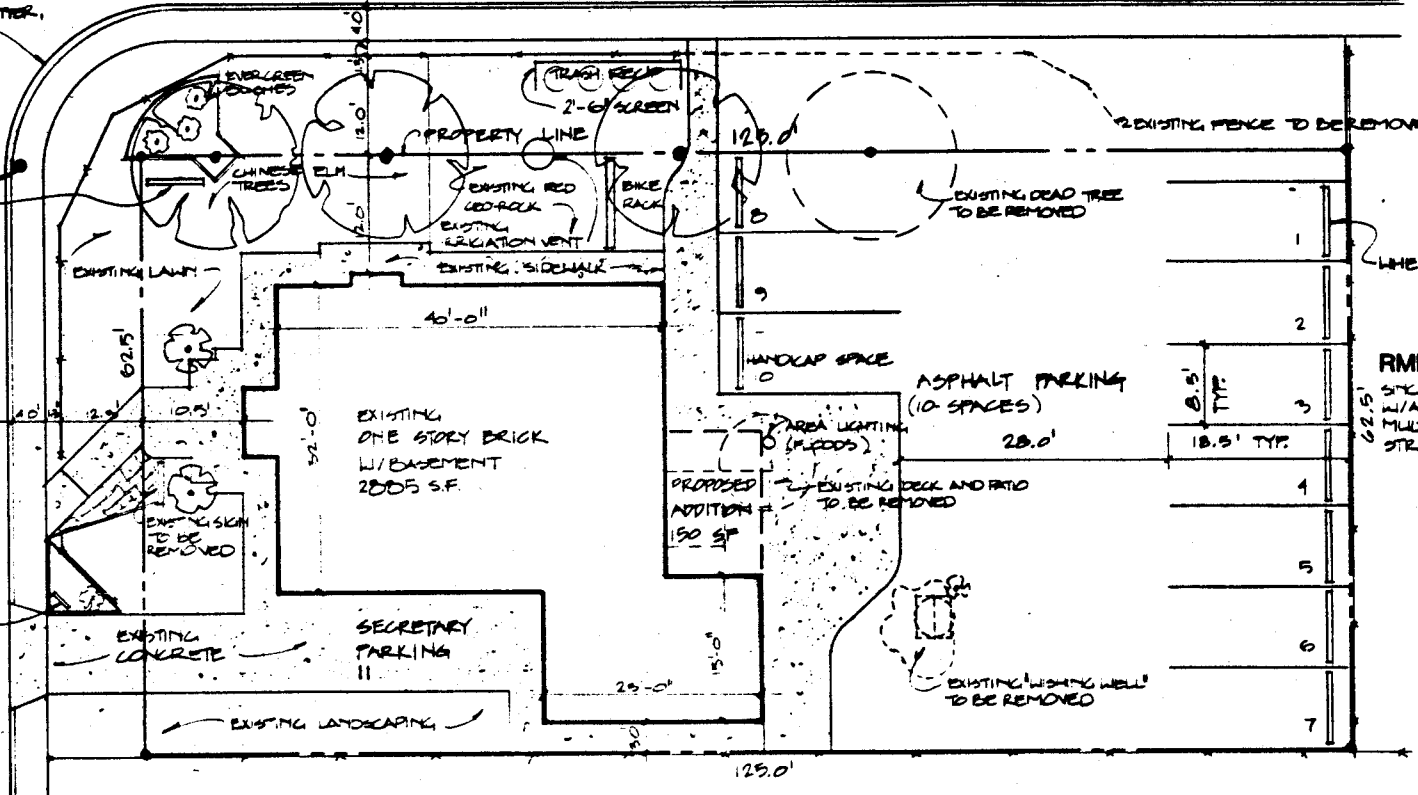 40'
12.0'
EVERGREEN
BUSHES
TRASH RECEP
2'-6" SCREEN
PROPERTY LINE
125.0'
EXISTING FENCE TO BE REMOVE
CHINESE ELM
TREES
EXISTING RED
CEO-ROCK
EXISTING
IRRIGATION VENT
BIKE
RACK
EXISTING DEAD TREE
TO BE REMOVED
12.0'
8
1
EXISTING LAWN
EXISTING SIDEWALK
WHE
9
40'-0"
2
62.5'
HANDICAP SPACE
ASPHALT PARKING
(10 SPACES)
8.5'
TYP.
3
62.5'
40'
10.5'
32'-0"
EXISTING
ONE STORY BRICK
W/BASEMENT
2885 S.F.
AREA LIGHTING
(FLOODS)
28.0'
18.5' TYP.
PROPOSED
ADDITION
150 SF
EXISTING DECK AND PATIO
TO BE REMOVED
4
EXISTING SIGN
TO BE
REMOVED
5
EXISTING
CONCRETE
SECRETARY
PARKING
11
6
15'-0"
23-0"
EXISTING "WISHING WELL"
TO BE REMOVED
EXISTING LANDSCAPING
7
125.0'